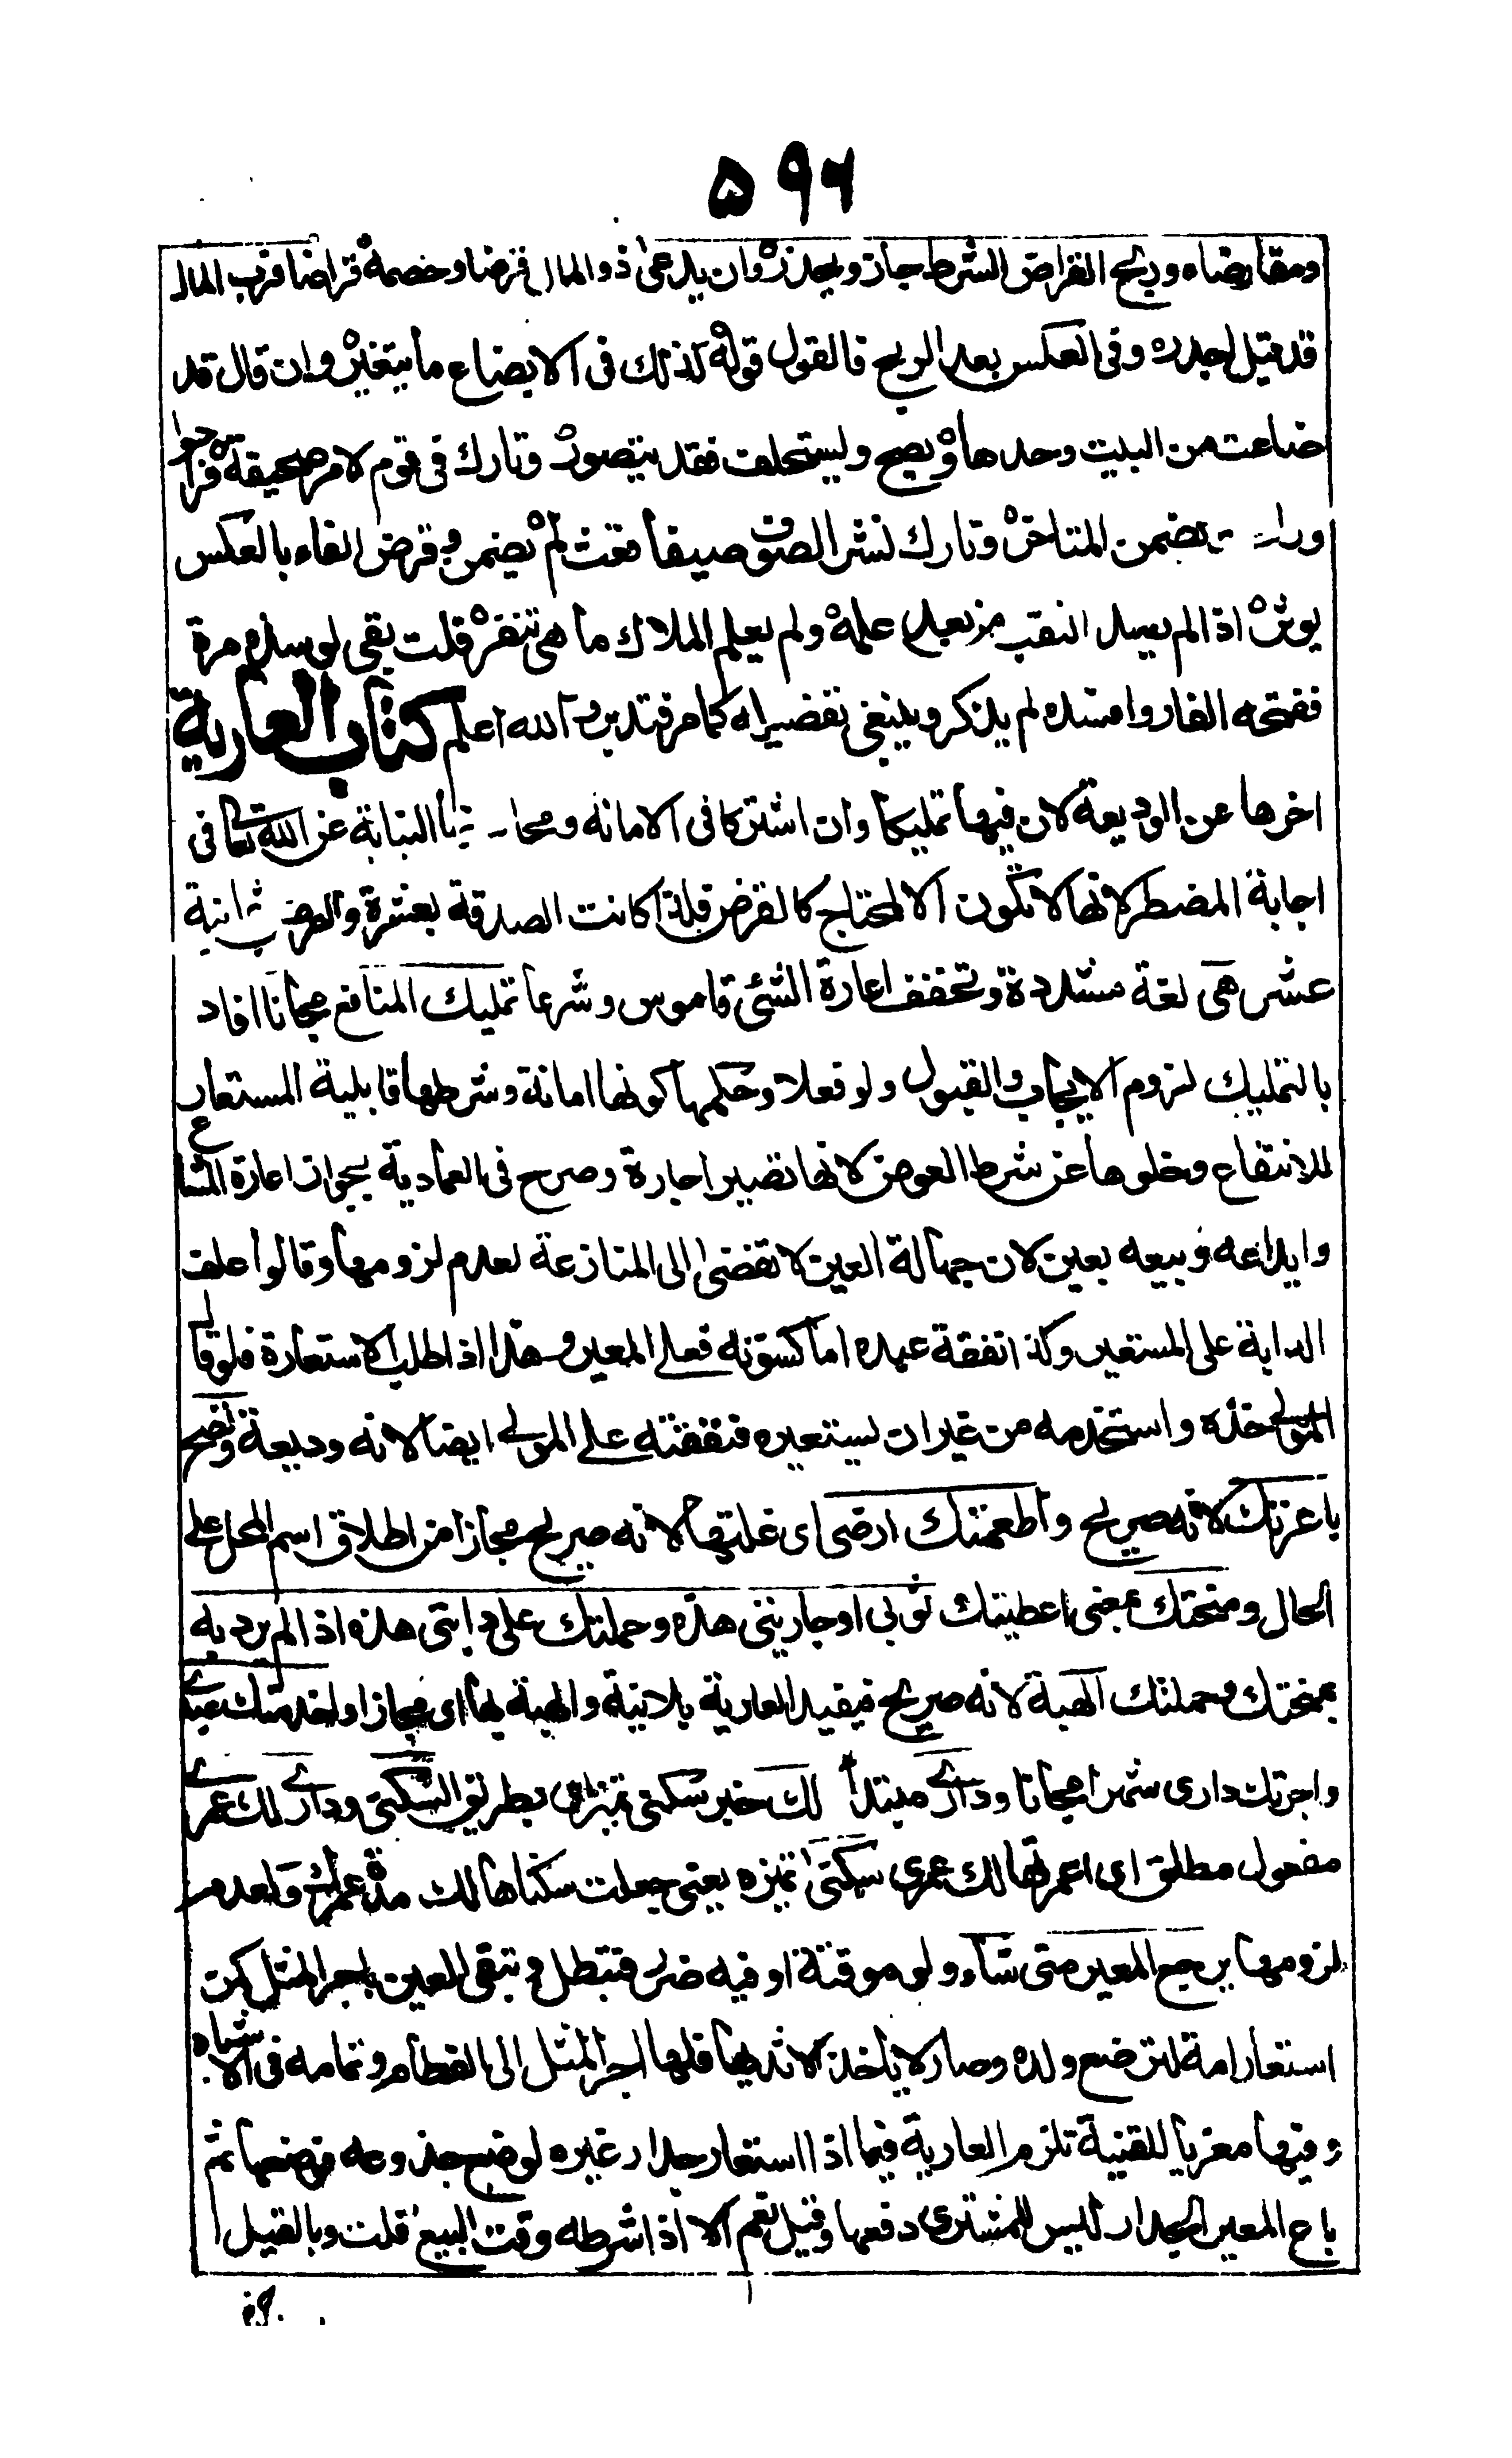 ۵۹۶
ومقارضاه وربح القراض الشرط جاز ويحذر * وان يدعى ذو المال قرضا وخصمه * قراضا فرب المال
قد قيل اجدر * وفى العكس بعد الربح فالقول قوله * كذلك فى الابضاع ما يتغير * وان قال قد
ضاعت من البيت وحدها * يصح ويستحلف فقد يتصور * وتارك فى قوم لامر صحيفة * فراحوا
وراحت يضمن المتاخر * وتارك نشر الصوف صيفا فعث لم * يضمن وقرض الفار بالعكس
يوثر * اذا لم يسد النقب من بعد علمه * ولم يعلم الملاك ما هى تنقر * قلت بقى لو سده مرة
ففتحه الفار وافسده لم يذكر وينبغى تفصيله كما مر فتدبر والله اعلم كتاب العارية
اخرها عن الوديعة لان فيها تمليكا وان اشتركا فى الامانة النيابة عن الله تعالى فى
اجابة المضطر لانها لا تكون الا لمحتاج كالقرض فلذا كانت الصدقة بعشرة والقرض بثمانية
عشر هى لغة مشددة وتخفف اعارة الشئ قاموس وشرعا تمليك المنافع مجانا افاد
بالتمليك لزوم الايجاب والقبول ولو فعلا وحكمها كونها امانة وشرطها قابلية المستعار
للانتفاع وخلوها عن شرط العوض لانها تصير اجارة وصرح فى العمادية بجواز اعارة المشاع
وايداعه وبيعه بعين لان جهالة العين لا تفضى الى المنازعة لعدم لزومها وقالوا علف
الدابة على المستعير وكذا نفقة عبده اما كسوته فعلى المعير وهذا اذا طلب الاستعارة فلو قال
المولى خذه واستخدمه من غير ان يستعيره فنفقته على المولى ايضا لانه وديعة وتصح
باعرتك لانه صريح واطعمتك ارضى اى غلتها لانه صريح مجازا من اطلاق اسم المحل على
الحال ومنحتك بمعنى اعطيتك ثوبى او جاريتى هذه وحملتك على دابتى هذه اذا لم يرد به
بمنحتك وحملتك الهبة لانه صريح فيفيد العارية بلا نية والهبة بها اى مجازا واخدمتك عبدى
واجرتك دارى شهرا مجانا ودارى مبتدأ لك خبر سكنى تميز اى بطريق السكنى ودارى لك عمرى
مفعول مطلق اى اعمرتها لك عمرى سكنى تميزه يعنى جعلت سكناها لك مدة عمرك ولعدم
لزومها يرجع المعير متى شاء ولو موقتة او فيه ضرر فتبطل وتبقى العين باجر المثل كمن
استعار امة لترضع ولده وصار لا ياخذ الا ثديها فلها اجر المثل الى الفطام وتمامه فى الاشباه
وفيها معزيا للقنية تلزم العارية فيما اذا استعار جدار غيره لوضع جذوعه فوضعها ثم
باع المعير الجدار ليس للمشترى دفعها وقيل نعم الا اذا شرطه وقت البيع قلت وبالقيل